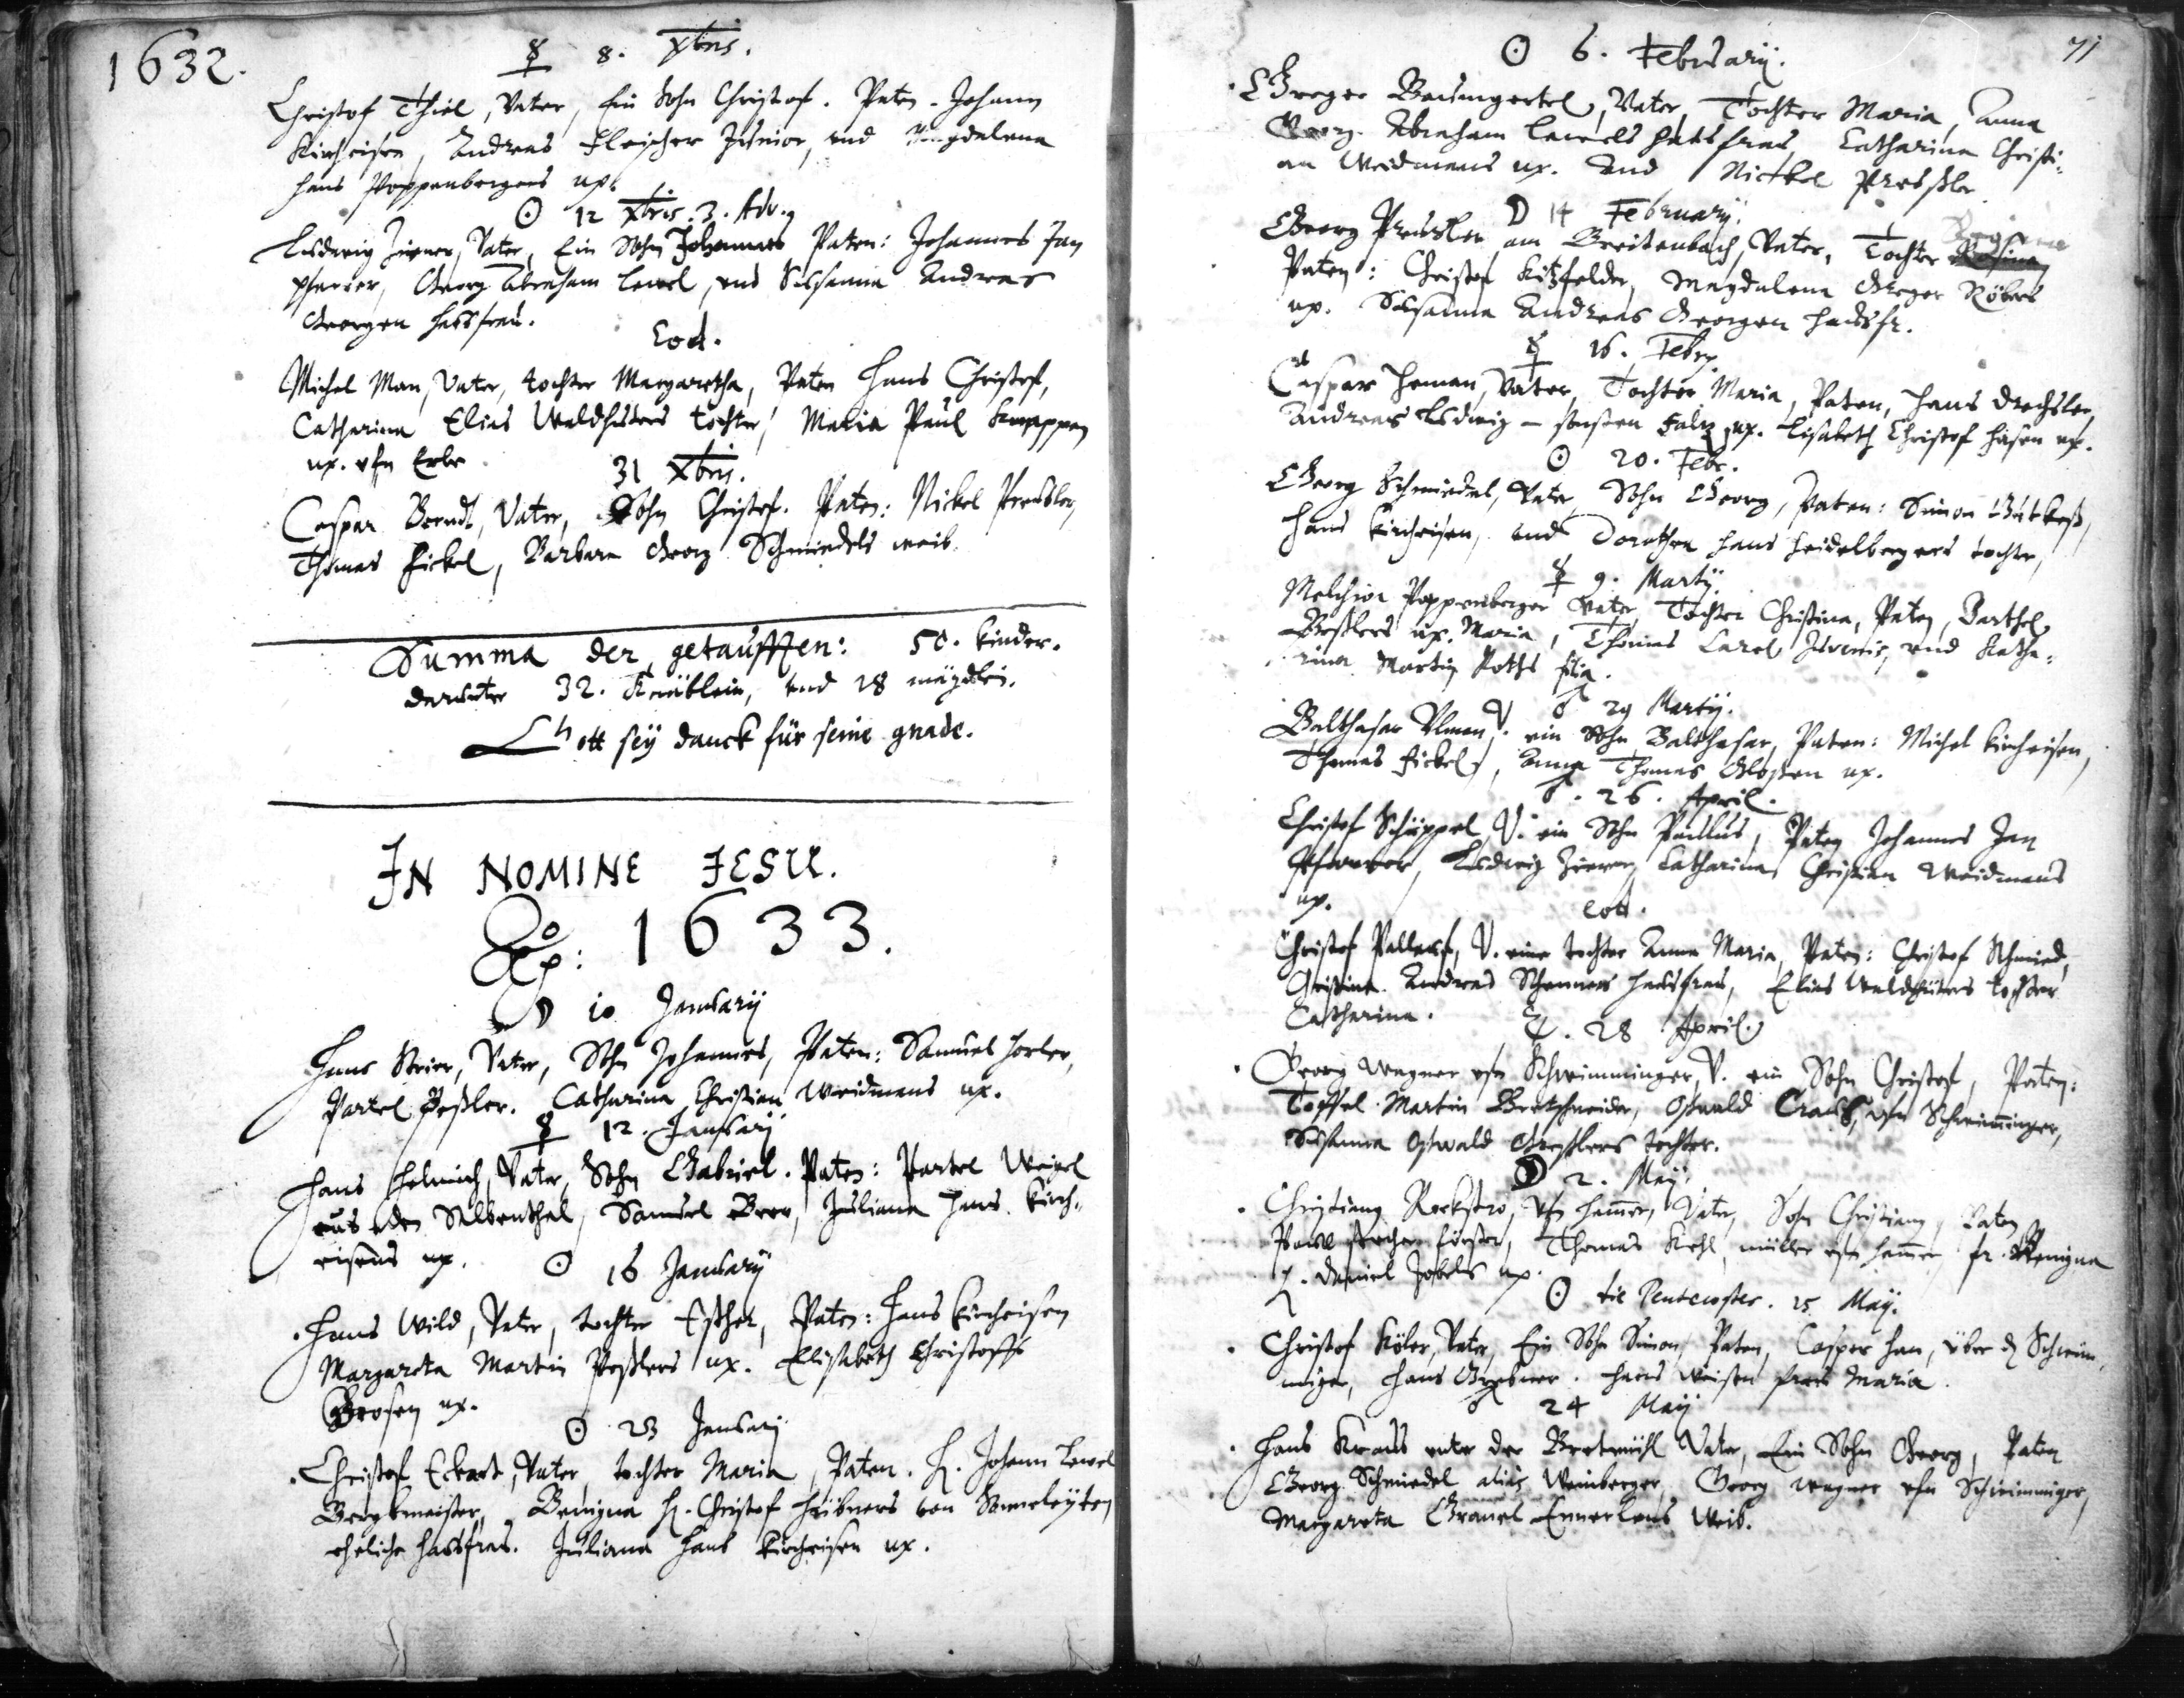 1632.
☿ 8. Xbris.
Christof Thiel, Vater, Ein Sohn Christof. Paten. Johann
Kircheisen, Andreas Fleischer Junior, und Magdalena
Hans Poppenbergers ux.
☉ 12 Xbris. 3. Adv.
Ludwig Zierner, Vater, Ein Sohn Johannes Paten: Johannes Jan
pfarrer, Georg Abraham Lewel, und Sussanna Andreas
Georgen haussfrau.
Eod.
Michel Man, Vater, tochter Margaretha, Paten Hans Christof,
Catharina Elias Waldhüters tochter, Maria Paul Knappen
ux. ufn Erbe
31 Xbris.
Caspar Berndt, Vater, Sohn Christof. Paten: Nickel Preusler,
Thomas Fickel, Barbara Georg Schmiedels weib.
Summa der getaufften: 50. kinder.
darunter 32. Knäblein, und 18 mägdlein.
Gott sey danck für seine gnade.
IN NOMINE JESU.
1633.
☽ 10 January
Hans Beier, Vater, Sohn Johannes, Paten: Samuel Horler,
Partel Peßler. Catharina Christian Weidmans ux.
☿ 12. January
Hans Helmrich, Vater, Sohn Gabriel. Paten: Partel Weigel
aus den Silbenthal, Samuel Beer, Juliana Hans Kirch-
eisens ux.
☉ 16 January
Hans Wild, Vater, tochter Esther, Paten: Hans Kircheisen
Margareta Martin Peßlers ux. Elisabeth Christoffs
Grosen ux.
☉ 23 January
Christof Eckart, Vater, tochter Maria, Paten. H. Johann Lewel
Bergkmeister, Benigna H. Christof Hübners von Sonneleyten
eheliche haussfrau. Juliana Hans Kircheisen ux.
71
☉ 6. February.
Greger Baumgertel, Vater, Tochter Maria, Anna
Georg Abraham Lewels hausfrau Catharina Christi-
an Weidmans ux. und Nickel Preusler
☽ 14 February.
Georg Preusler am Breitenbach, Vater, Tochter Regina
Paten: Christof Kitzfelder, Magdalena Greger Röbers
ux. Susanna Andreas Georgen hausfr.
☿ 16. Febr.
Caspar Heman, Vater, Tochter Maria, Paten, Hans Drechsler,
Andreas Ludwig - sonsten Falz ux. Elisabeth Christof Hasen ux.
☉ 20. Febr.
Georg Schmiedel, Vater, Sohn Georg, Paten: Simon Gutkeß,
Hans Kircheisen, und Dorothea Hans Heidelbergers tochter,
☿ 9. Marty.
Melchior Poppenberger Vater, Tochter Christina, Paten, Barthel
Peßlers ux. Maria, Thomas Larel Juvenis, und Katha-
rina Martin Roths filia.
♂ 29 Marty.
Balthasar Ulman V. ein Sohn Balthasar, Paten: Michel Kircheisen,
Thomas Fickel, Anna Thomas Glosen ux.
26. April.
Christof Schüppel, V. ein Sohn Paulus, Paten Johannes Jan
Pfarrer, Ludwig Zierner, Catharina Christian Weidmans
ux.
eod.
Christof Pallauf, V. eine tochter Anna Maria, Paten: Christof Schmied,
Christina Andreas Schenners hausfrau, Elias Waldhüters tochter
Catharina.
♃. 28 April.
Georg Wagner ufn Schwimminger, V. ein Sohn Christof, Paten:
Toffel Martin Bretschneider, Oswald Crauß, ufn Schwimminger,
Susanna Oswald Greßlers tochter.
☽ 2. May.
Christiang Rockstro, ufn Hammer, Vater, Sohn Christiang, Paten
Paul förster, Thomas Kehl, müller ufn hammer, fr. Benigna
H. Daniel Jobels ux.
☉ die Pentecostes. 15 May.
Christof Köler, Vater, Ein Sohn Simon, Paten, Caspar Han, über d Schwim
minger, Hans Grebner. Hans Weisen frau Maria.
♂ 24 May
Hans Krauß unter der Bretmühl Vater, Ein Sohn Georg, Paten
Georg Schmiedel alias Weinberger, Georg Wagner ufn Schwimminger,
Margareta Granel Emmerlens Weib.